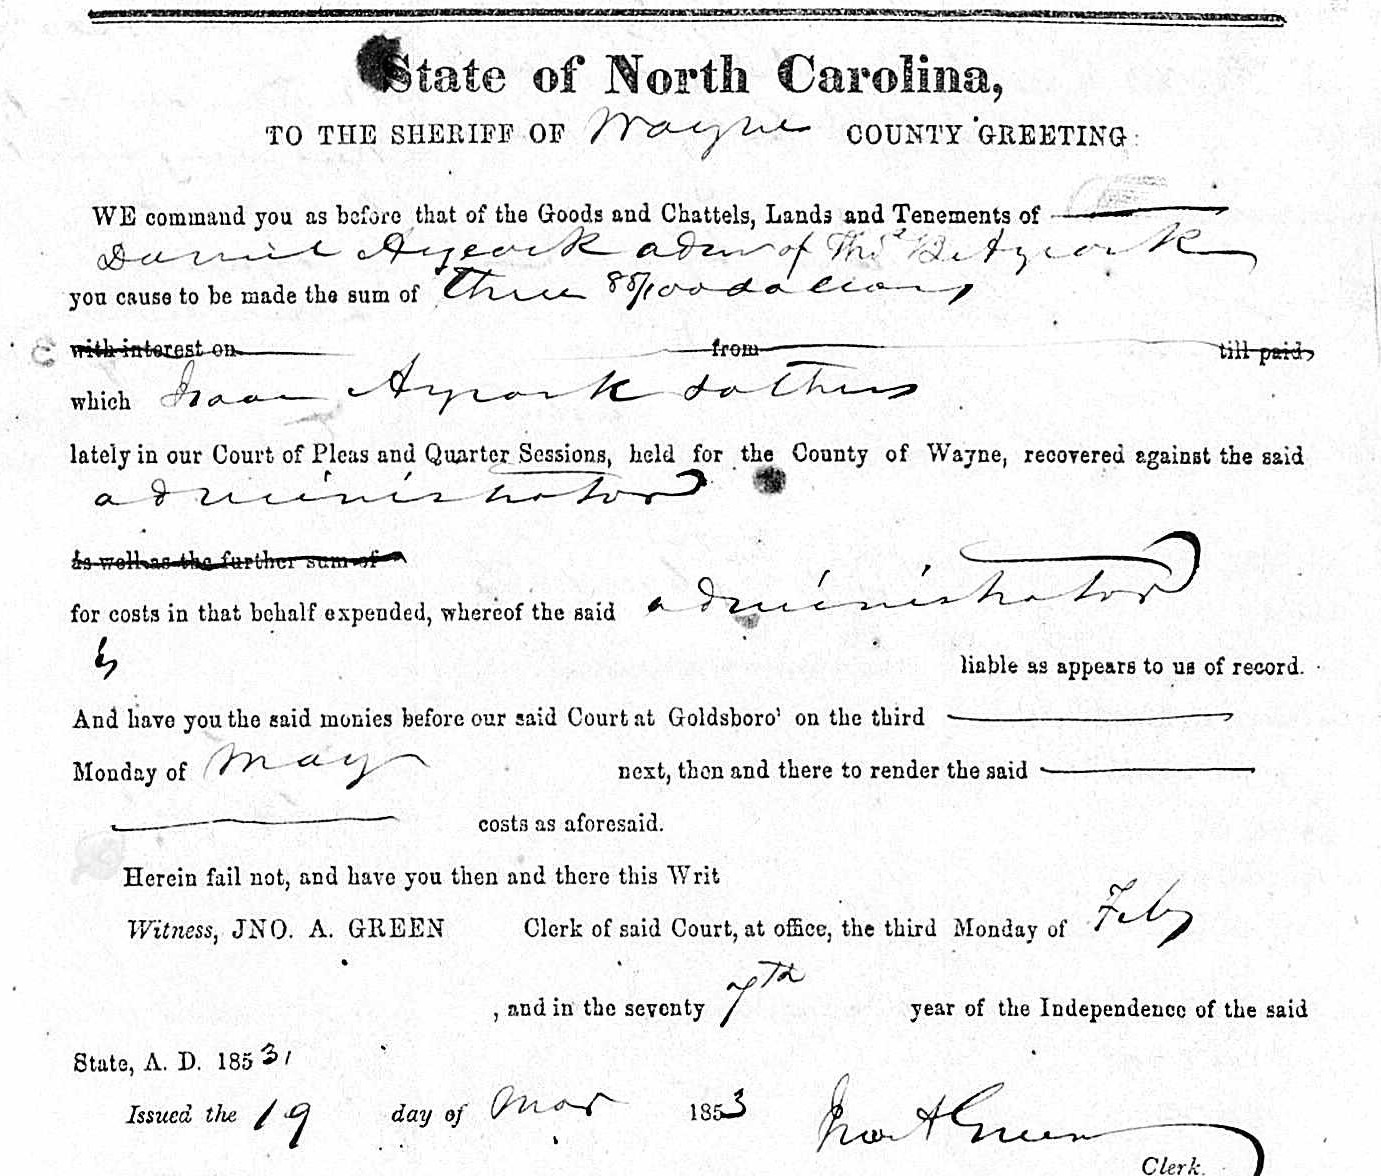 State of North Carolina,
TO THE SHERIFF OF Wayne COUNTY GREETING:
WE command you as before that of the Goods and Chattels, Lands and Tenements of
Daniel Aycock adm of Thos B Aycock
you cause to be made the sum of three 85/100 dollars
with interest on from till paid,
which Isaac Aycock & others
lately in our Court of Pleas and Quarter Sessions, held for the County of Wayne, recovered against the said
administrator
As well as the further sum of
for costs in that behalf expended, whereof the said administrator
is liable as appears to us of record.
And have you the said monies before our said Court at Goldsboro' on the third
Monday of May next, then and there to render the said
costs as aforesaid.
Herein fail not, and have you then and there this Writ
Witness, JNO. A. GREEN Clerk of said Court, at office, the third Monday of Feby
, and in the seventy 7th year of the Independence of the said
State, A. D. 1853
Issued the 19 day of Mar 1853 Jno A Green
Clerk.